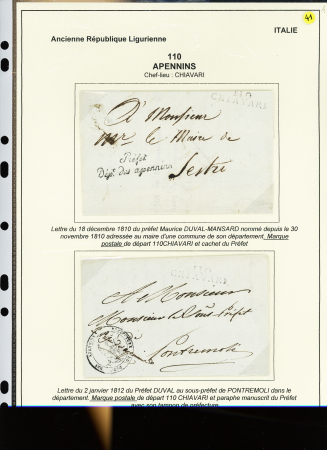 41
ITALIE
Ancienne République Ligurienne
110
APENNINS
Chef-lieu : CHIAVARI
110
CHIAVARI
A Monsieur
Mr le Maire de
Sestri
Préfet
Dépt. des apennins
Lettre du 18 décembre 1810 du préfet Maurice DUVAL-MANSARD nommé depuis le 30
novembre 1810 adressée au maire d'une commune de son département. Marque
postale de départ 110CHIAVARI et cachet du Préfet
CHIAVARI
A Monsieur
Monsieur le Sous-Préfet
Pontremoli
Lettre du 2 janvier 1812 du Préfet DUVAL au sous-préfet de PONTREMOLI dans le
département. Marque postale de départ 110 CHIAVARI et paraphe manuscrit du Préfet
avec son tampon de préfecture